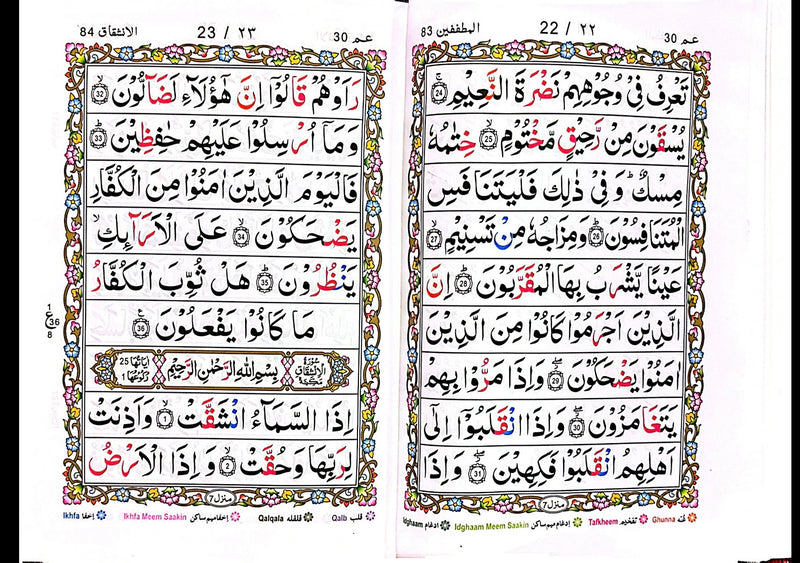 عم 30
22 / ٢٢
المطففين 83
تَعْرِفُ فِیْ وُجُوْهِهِمْ نَضْرَةَ النَّعِیْمِ 24
یُسْقَوْنَ مِنْ رَّحِیْقٍ مَّخْتُوْمٍ 25 خِتٰمُهٗ
مِسْكٌ ؕ وَ فِیْ ذٰلِكَ فَلْیَتَنَافَسِ
الْمُتَنَافِسُوْنَ 26 وَ مِزَاجُهٗ مِنْ تَسْنِیْمٍ 27
عَیْنًا یَّشْرَبُ بِهَا الْمُقَرَّبُوْنَ 28 اِنَّ
الَّذِیْنَ اَجْرَمُوْا كَانُوْا مِنَ الَّذِیْنَ
اٰمَنُوْا یَضْحَكُوْنَ 29 وَ اِذَا مَرُّوْا بِهِمْ
یَتَغَامَزُوْنَ 30 وَ اِذَا انْقَلَبُوْۤا اِلٰۤی
اَهْلِهِمُ انْقَلَبُوْا فَكِهِیْنَ 31 وَ اِذَا
منزل 7
Ghunna غنه Tafkheem تفخيم Idghaam Meem Saakin إدغام ميم ساكن Idghaam ادغام
عم 30
23 / ٢٣
الانشقاق 84
رَاَوْهُمْ قَالُوْۤا اِنَّ هٰۤؤُلَآءِ لَضَآلُّوْنَ 32
وَ مَاۤ اُرْسِلُوْا عَلَیْهِمْ حٰفِظِیْنَ 33
فَالْیَوْمَ الَّذِیْنَ اٰمَنُوْا مِنَ الْكُفَّارِ
یَضْحَكُوْنَ 34 عَلَی الْاَرَآىِٕكِ
یَنْظُرُوْنَ 35 هَلْ ثُوِّبَ الْكُفَّارُ
مَا كَانُوْا یَفْعَلُوْنَ 36
1 ع 36 8
سُوْرَةُ الْاِنْشِقَاقِ مَكِّیَّةٌ بِسْمِ اللّٰهِ الرَّحْمٰنِ الرَّحِیْمِ اٰیَاتُهَا 25 رُكُوْعُهَا 1
اِذَا السَّمَآءُ انْشَقَّتْ 1 وَ اَذِنَتْ
لِرَبِّهَا وَ حُقَّتْ 2 وَ اِذَا الْاَرْضُ
منزل 7
Qalb قلب Qalqala قلقله Ikhfa Meem Saakin إخفا ميم ساكن Ikhfa إخفا